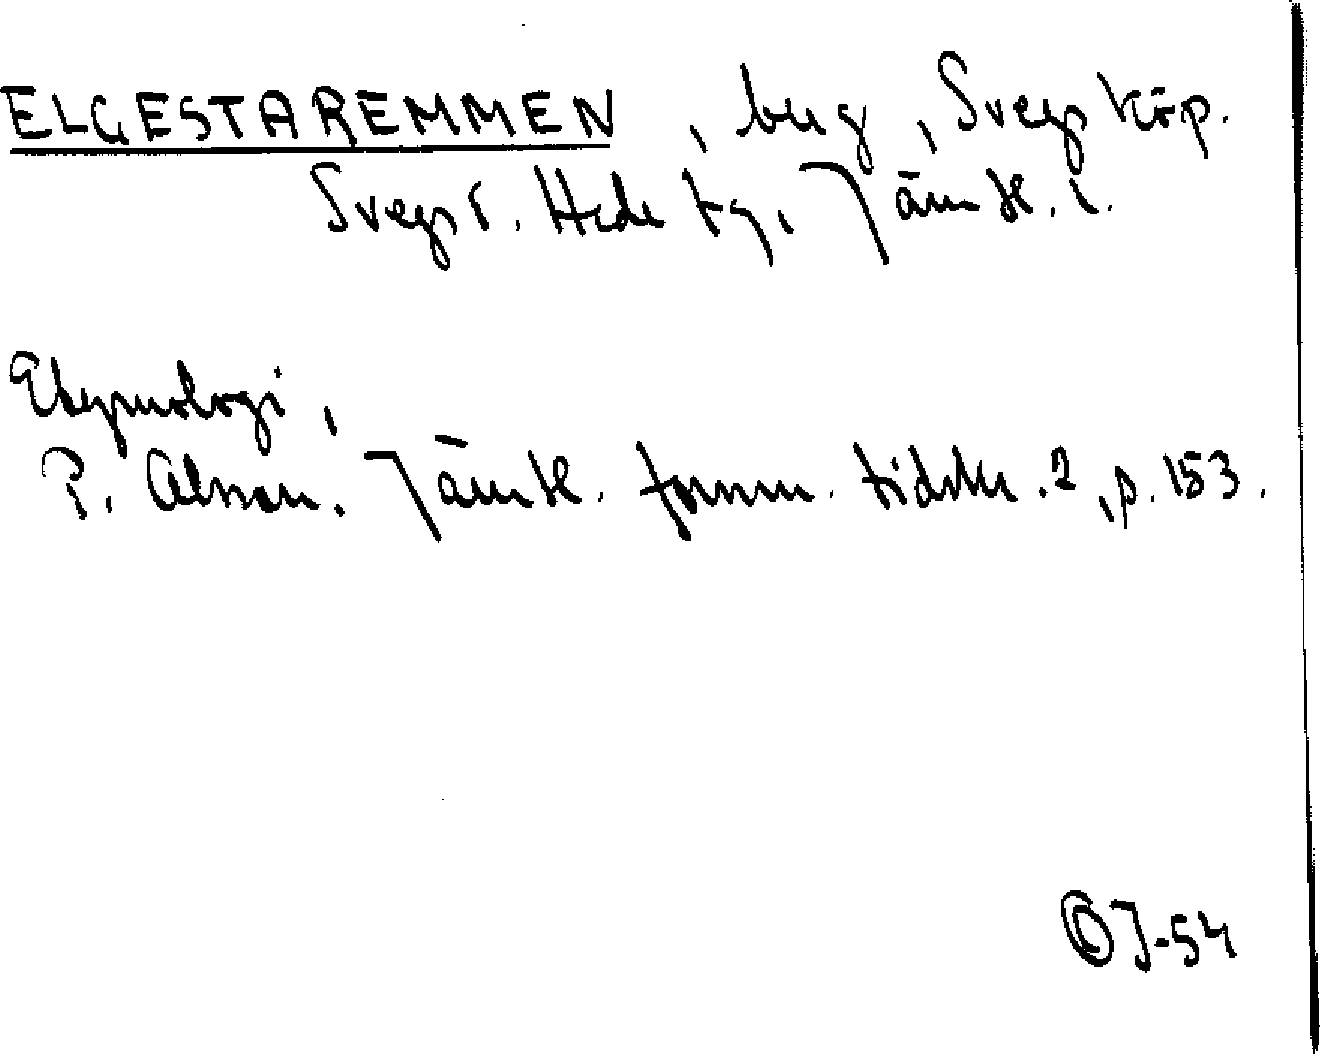 ELGESTAREMMEN, berg, Svegs köp.
Svegs s. Hede tg, Jämtl. l.
Etymologi,
P. Alsson. Jämtl. fornm. tidskr. 2, p. 153.
ÖJ-54